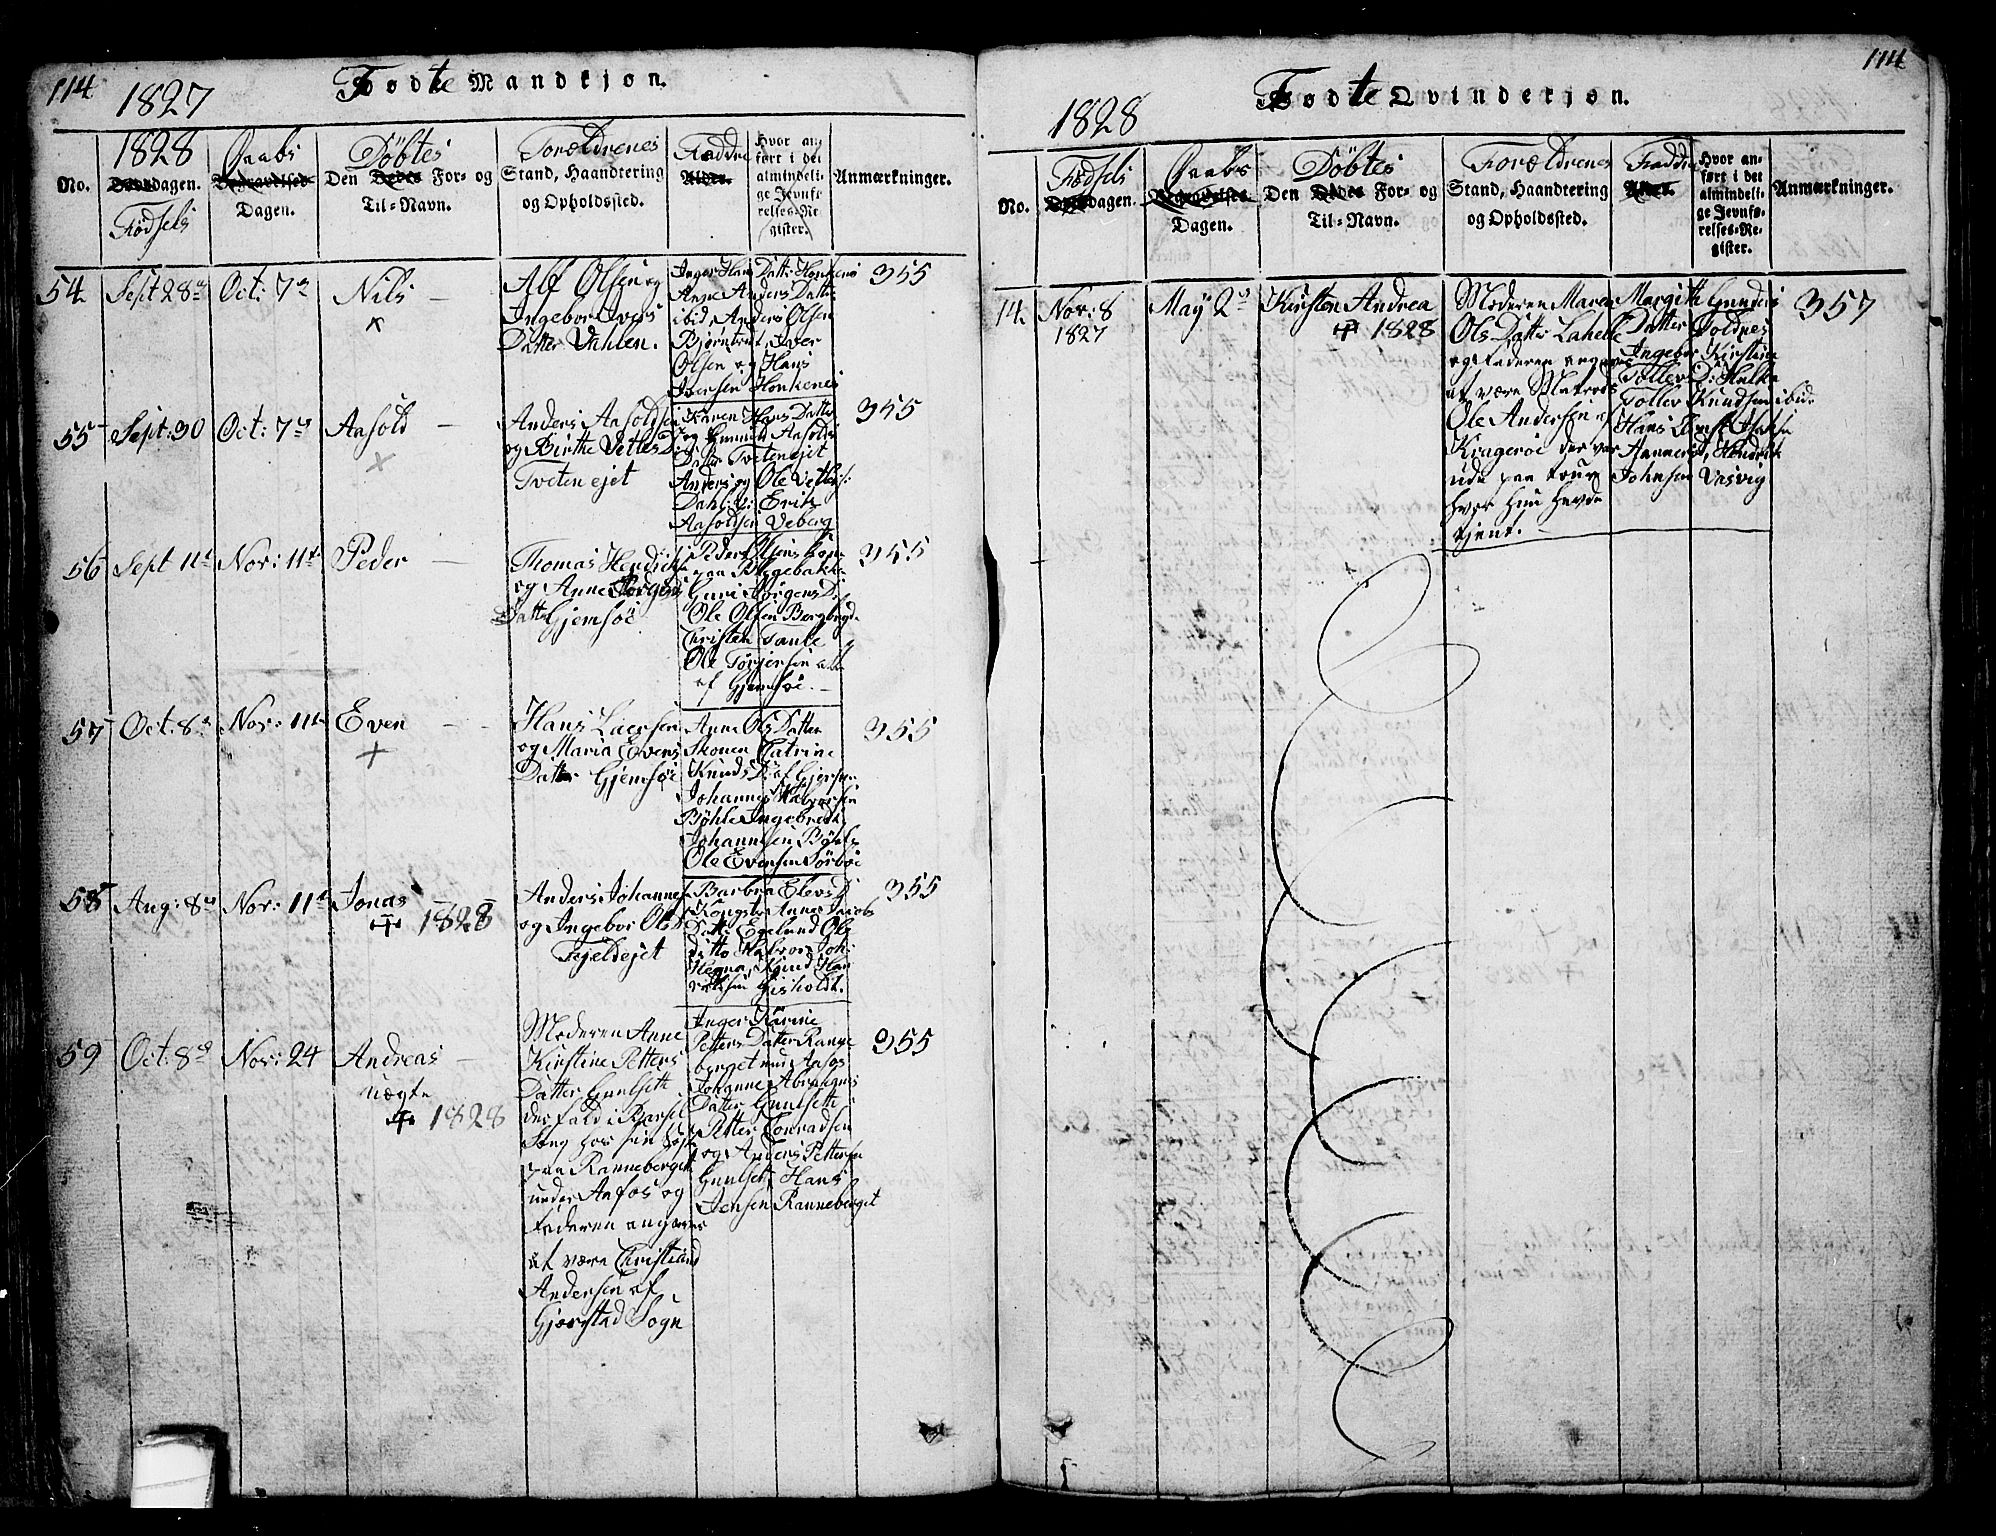 114 1827 Fødte Mandkjøn.
No.
1828
Dødsdagen.
Fødsels
Daabs
Begravelses-
Dagen.
Døbtes
Den Dødes For- og
Til-Navn.
Forældrenes
Stand, Haandtering
og Opholdssted.
Faddre
Alder.
Hvor an-
ført i det
almindeli-
ge Jevnfø-
relses-Re-
gister.
Anmærkninger.
54. Sept 28de Oct: 7de Nils —
Alf Olsen og
Ingebor Ivers
Datter Vahlen.
Inger Hans Datter Honkenes
Anne Anders Datter
ibid, Anders Olsen
Bjørntvet, Iver
Olsen og Hans
Iversen Honkenes
355
55 Sept: 30 Oct: 7de Aasold —
Anders Aasoldsen
og Birthe Vetles D:
Tveten ejet
Karen Hans Datter
og Gunnild Aasolds
Datter Tveten ejet
Anders og Ole Vetles:
Dahl: Erik
Aasoldsen Veberg
355
56 Sept 11te Nov: 11te Peder —
Thomas Hendrichs:
og Anne Jørgens
Datter Gjemsöe
Peder Olsens Kone
paa Bøgebakke
Guri Jörgens D:
Ole Olsen Borgbryd
Christen Tanke
Ole Törjersen alle
af Gjemsöe. —
355
57 Oct: 8de Nov: 11te Even —
Hans Laersen
og Maria Evens
Datter Gjemsöe
Anne Ols Datter
Skonen Catrine
Knuds D: af Gjersøe
Johannes Halvorsen
Bøhle Ingebret
Johannesen Bøhle
Ole Evensen Sörboe
355
58 Aug: 8de Nov: 11te Jonas
1828
Anders Johannes:
og Ingebor Ols D
Fjeldejet
Barbra Elevs D:
Kongsto Anne Jacobs
Datter Egelund Ole
ditto Halvor Joh:
Hegna, Knud Han
Gisholdt.
355
59 Oct: 8de Nov: 24 Andreas —
uægte
1828
Moderen Anne
Kirstine Petters
Datter Gunlseth
der faldt i Barsel
Seng hos sin
paa Ranneberget
under Aafos og
Faderen angaves
at være Christian
Andersen af
Gjerestad Sogn
Inger Karine
Petters Datter Ranne
berget und: Aafos
Johanne Abrahams
Datter Gunlseth
Petter Conradsen
og Anders Pettersen
Gunlset, Hans
Jensen Ranneberget
355
114
1828 Fødte Qvinderjøn.
No.
Fødsels
Dødsdagen.
Daabs
Begravelses-
Dagen.
Døbtes
Den Dødes For- og
Til-Navn.
Forældrenes
Stand, Haandtering
og Opholdssted.
Faddre
Alder.
Hvor an-
ført i det
almindeli-
ge Jevnfø-
relses-Re-
gister.
Anmærkninger.
14. Nov: 8
1827
May 2de
Kirsten Andrea
1828
Moderen Maren
Ols Datter Lahelle
og Faderen angaves
at være Matros
Ole Andersen af
Kragerøe der var
ude paa
hvor hun havde
tjent.
Margith Gunders
Datter Doldnes
Ingebor Kirstine
Tollevs D: Hulka
Tollev Knudsen ibid:
Hans Ernst Isaksen
Hannerød, Hendrik
Johnsen Vasvig
357